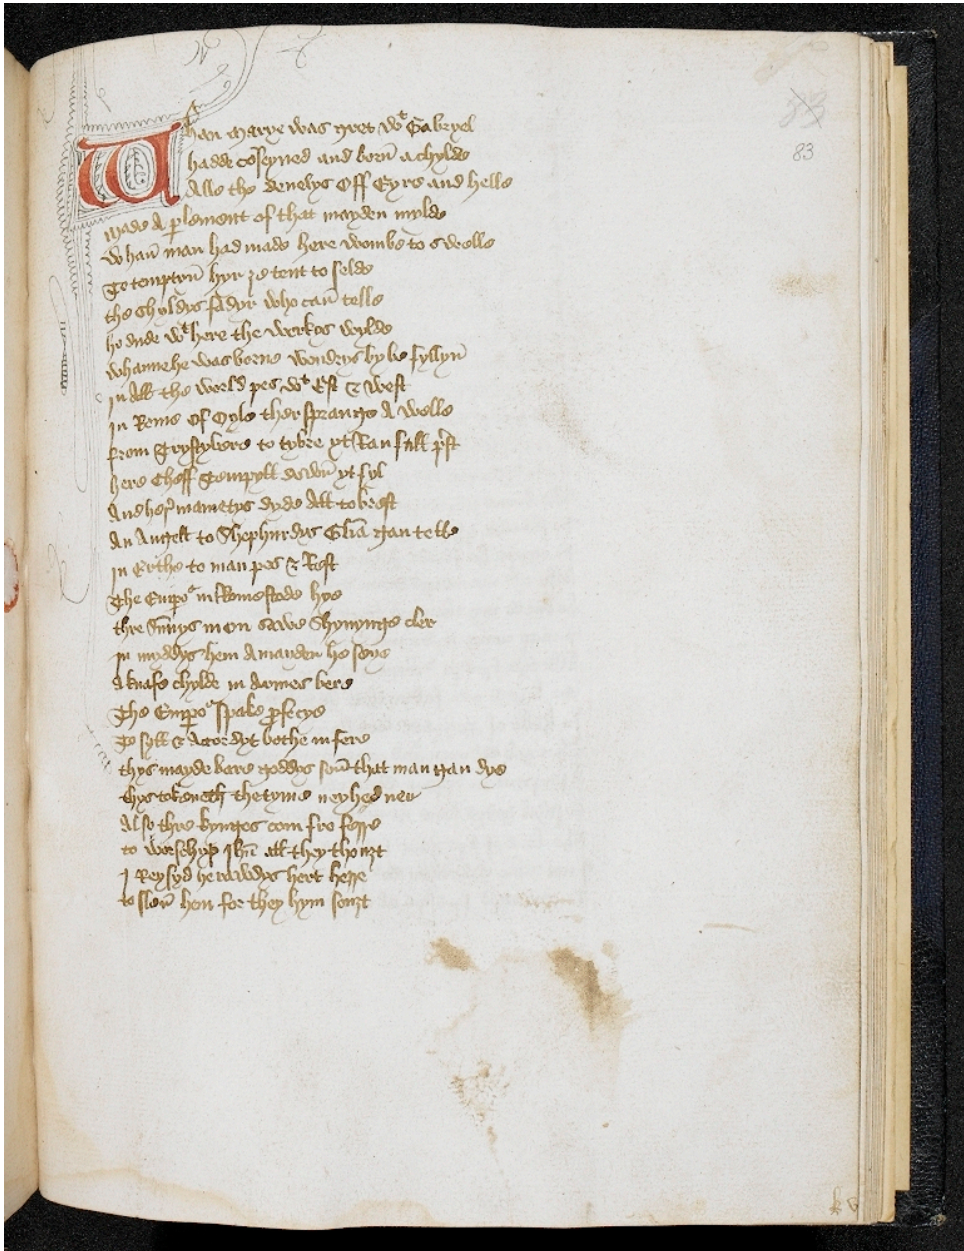 83
83
Whan marye was gret wt Gabryel
hadde coseyued and born̄ a chylde
Alle the deuelys off Eyre and helle
made A plement of that mayden mylde
whan̄ man had made here wombe to swelle
To temptyn̄ hyr ȝe tent to selde
the chyldys fadyr who can̄ telle
he dude wt here the werkes wylde
whanne he was borne wondrys by be fyllyn̄
jn All the world pes wt Est & west
jn Rome of Oyle ther sprange A welle
from Trystyvere to tybre yt Ran full prest
here Cheff Tempyll down̄ yt fyl
And her mametys dyde All to brest
An Angell to Shephurdys Glia gan telle
jn Erthe to man pes & Rest
The Empor in Rome stode hye
thre sunnys men sawe Shynynge cler
jn myddys hem A mayden he seye
A knafe chylde in Armes bere
The Empor spake profecye
To syll & Acordyt bothe in fere
thys mayde bare goddys son̄ that man gan dye
thys tokeneth the tyme neyhed ner
Also thre kynges com fro ferre
to worschyp jhu all they thouȝt
j Reysyd herawdys hert herre
to slen̄ hem for they hym souȝt